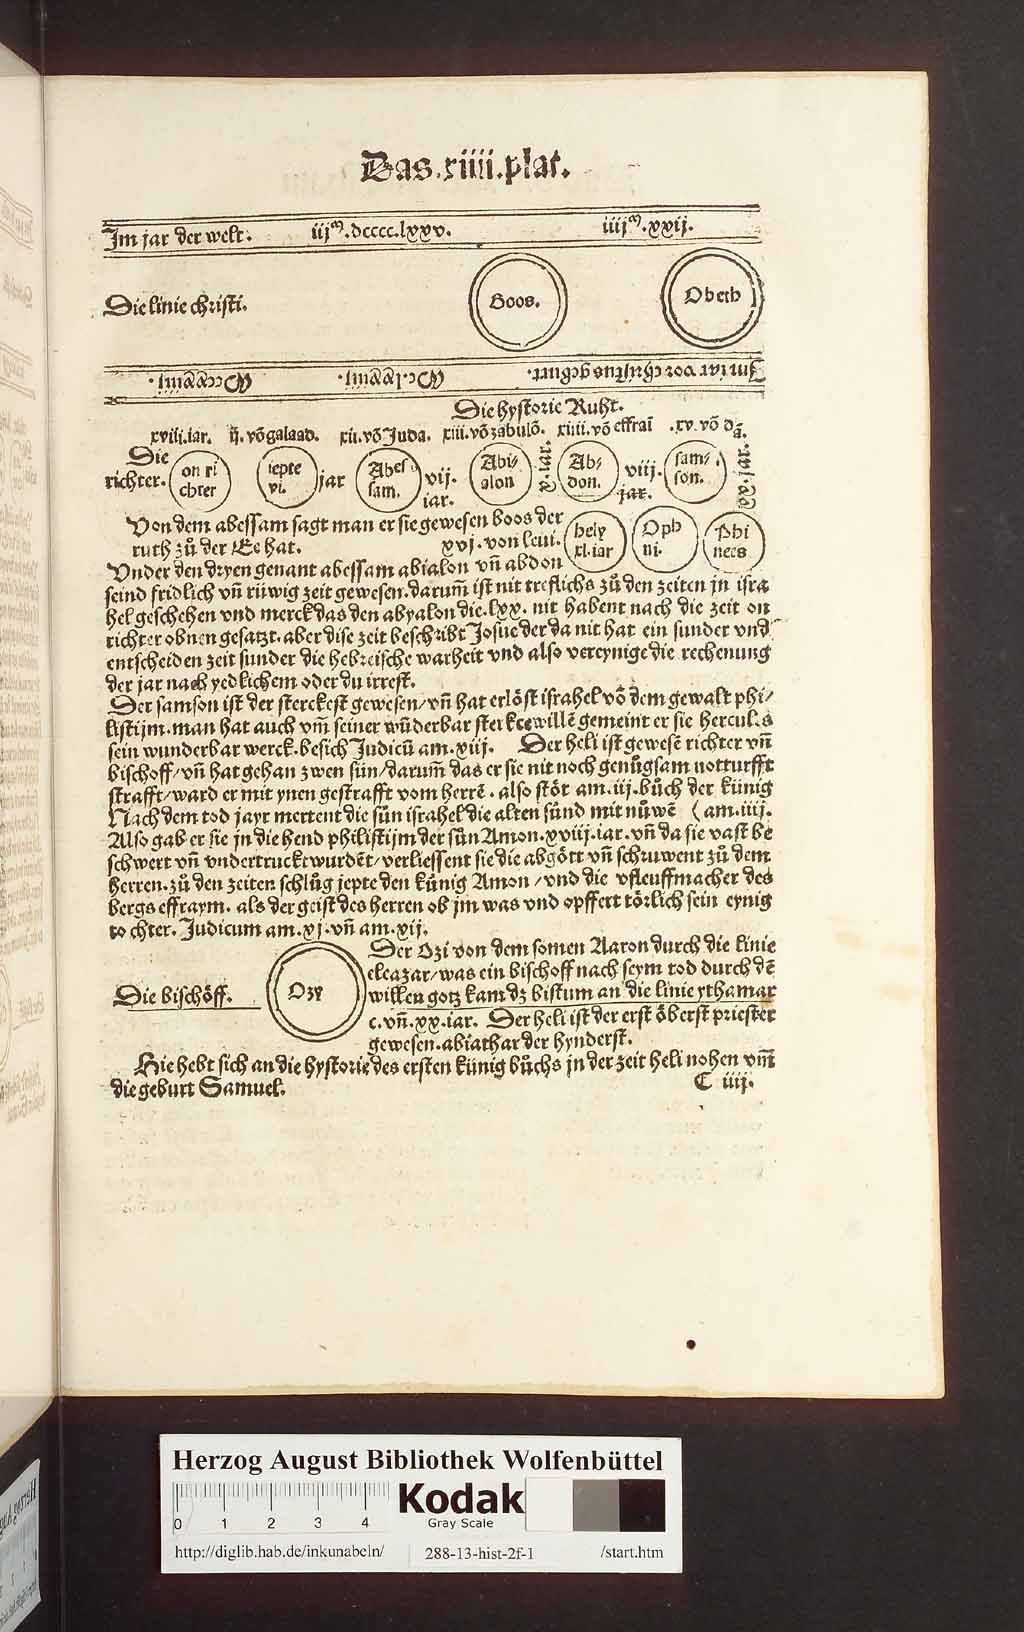 Das.xiiii.plat.
Im jar der welt. iijᵐ.dcccc.lxxv. iiijᵐ.xxij.
Die linie christi. Boos. Obeth
Im iar vor christus geburt.
Die hystorie Ruht.
xviii.iar. ij. võ galaad. xii. võ Juda. xiii. võ zabulõ. xiiii. võ effraī .xv. võ dã.
Die richter. on ri chter iepte vi. jar Abes sam. vij. iar. Abi- alon x.iar. Ab- don. viij. jar. sam- son. xx.iar.
Von dem abessam sagt man er sie gewesen boos der
ruth zů der Ee hat. xvj. von leui. hely xl.iar Oph ni. Phi nees
Vnder den dryen genant abessam abialon vñ abdon
seind fridlich vñ rüwig zeit gewesen.darum̃ ist nit treflichs zů den zeiten jn isra
hel geschehen vnd merck das den abyalon die.lxx. nit habent nach die zeit on
richter obnen gesatzt.aber dise zeit beschribt Josue der da nit hat ein sunder vnd
entscheiden zeit sunder die hebreische warheit vnd also vereynige die rechenung
der jar nach yedlichem oder du irrest.
Der samson ist der sterckest gewesen/vñ hat erlöst israhel võ dem gewalt phi/
listijm.man hat auch vm̃ seiner wũderbar sterkewillẽ gemeint er sie hercules
sein wunderbar werck.besich Judicũ am.xiij. Der heli ist gewesẽ richter vñ
bischoff/vñ hat gehan zwen sün/darum̃ das er sie nit noch genůgsam notturfft
strafft/ward er mit ynen gestrafft vom herrẽ. also stõt am.iij.bůch der künig
Nach dem tod jayr mertent die sün israhel die alten sünd mit nüwẽ (am.iiij.
Also gab er sie jn die hend philistijm der sün Amon.xviij.iar.vñ da sie vast be
schwert vñ vndertruckt wurdẽt/verliessent sie die abgött vñ schruwent zů dem
herren.zů den zeiten schlůg jepte den künig Amon/vnd die vfleuffmacher des
bergs effraym. als der geist des herren ob jm was vnd opffert törlich sein eynig
tochter. Judicum am.xj.vñ am.xij.
Die bischöff. Ozy
Der Ozi von dem somen Aaron durch die linie
eleazar/was ein bischoff nach seym tod durch dẽ
willen gotz kam dz bistum an die linie ythamar
c.vñ.xx.iar. Der heli ist der erst öberst priester
gewesen.abiathar der hynderst.
Hie hebt sich an die hystorie des ersten künig bůchs jn der zeit heli nohen vm̃
die geburt Samuel. C iiij.
Herzog August Bibliothek Wolfenbüttel
0 1 2 3 4
Kodak
Gray Scale
http://diglib.hab.de/inkunabeln/ 288-13-hist-2f-1 /start.htm